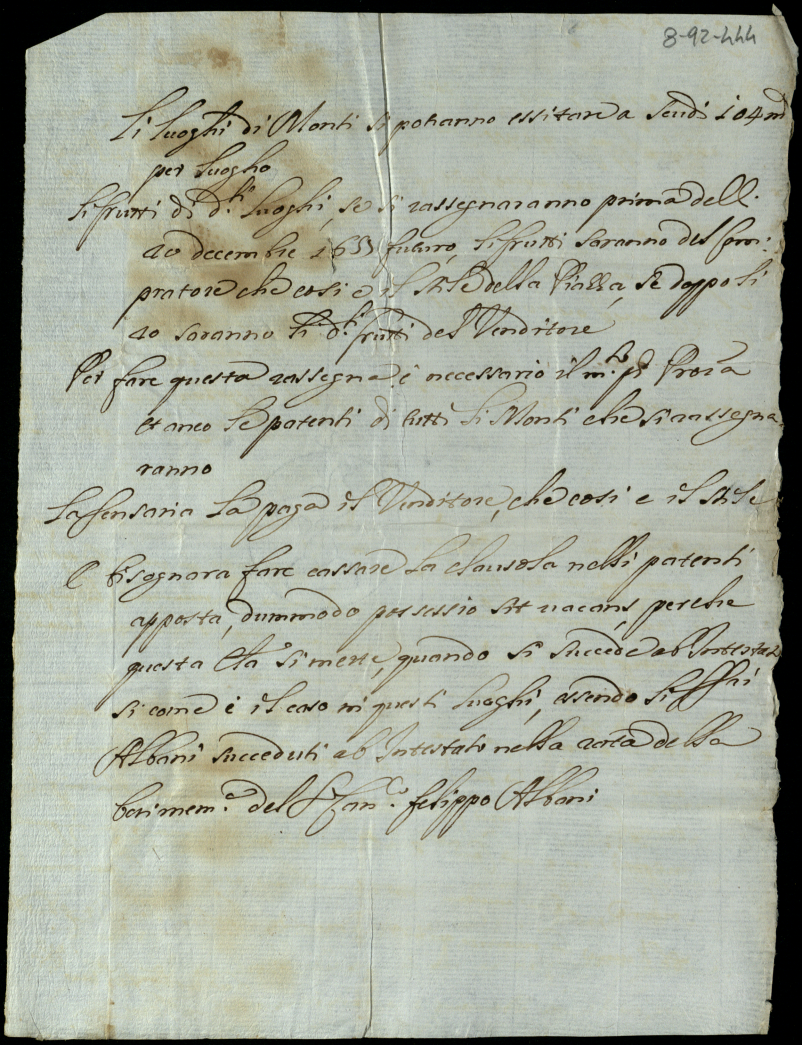 8-92-444
Li luoghi di Monti si potranno essitare a scudi 104 m.ta
per luogho
Li frutti di d.ti luoghi, se si rassegnaranno prima dell.
10 decembre 1655 futuro, li frutti saranno del com:
pratore che cosi e il stile della Piazza, se doppo li
10 saranno li d.ti frutti del Venditore
Per fare questa rassegna è necessario il Proc.ra
et anco le patenti di tutti li Monti che si rassegna
ranno
La sensaria la paga il Venditore, che cosi e il stile
E bisognara fare cassare la clausola nelli patenti
apposta, dummodo possessio sit vacans, perche
questa cla.a si mette, quando si succede ab Intestato
si come è il caso in questi luoghi, essendo li SS.ri
Albani succeduti ab Intestato nella rata della
bon: mem.a del S.r Can.co felippo Albani